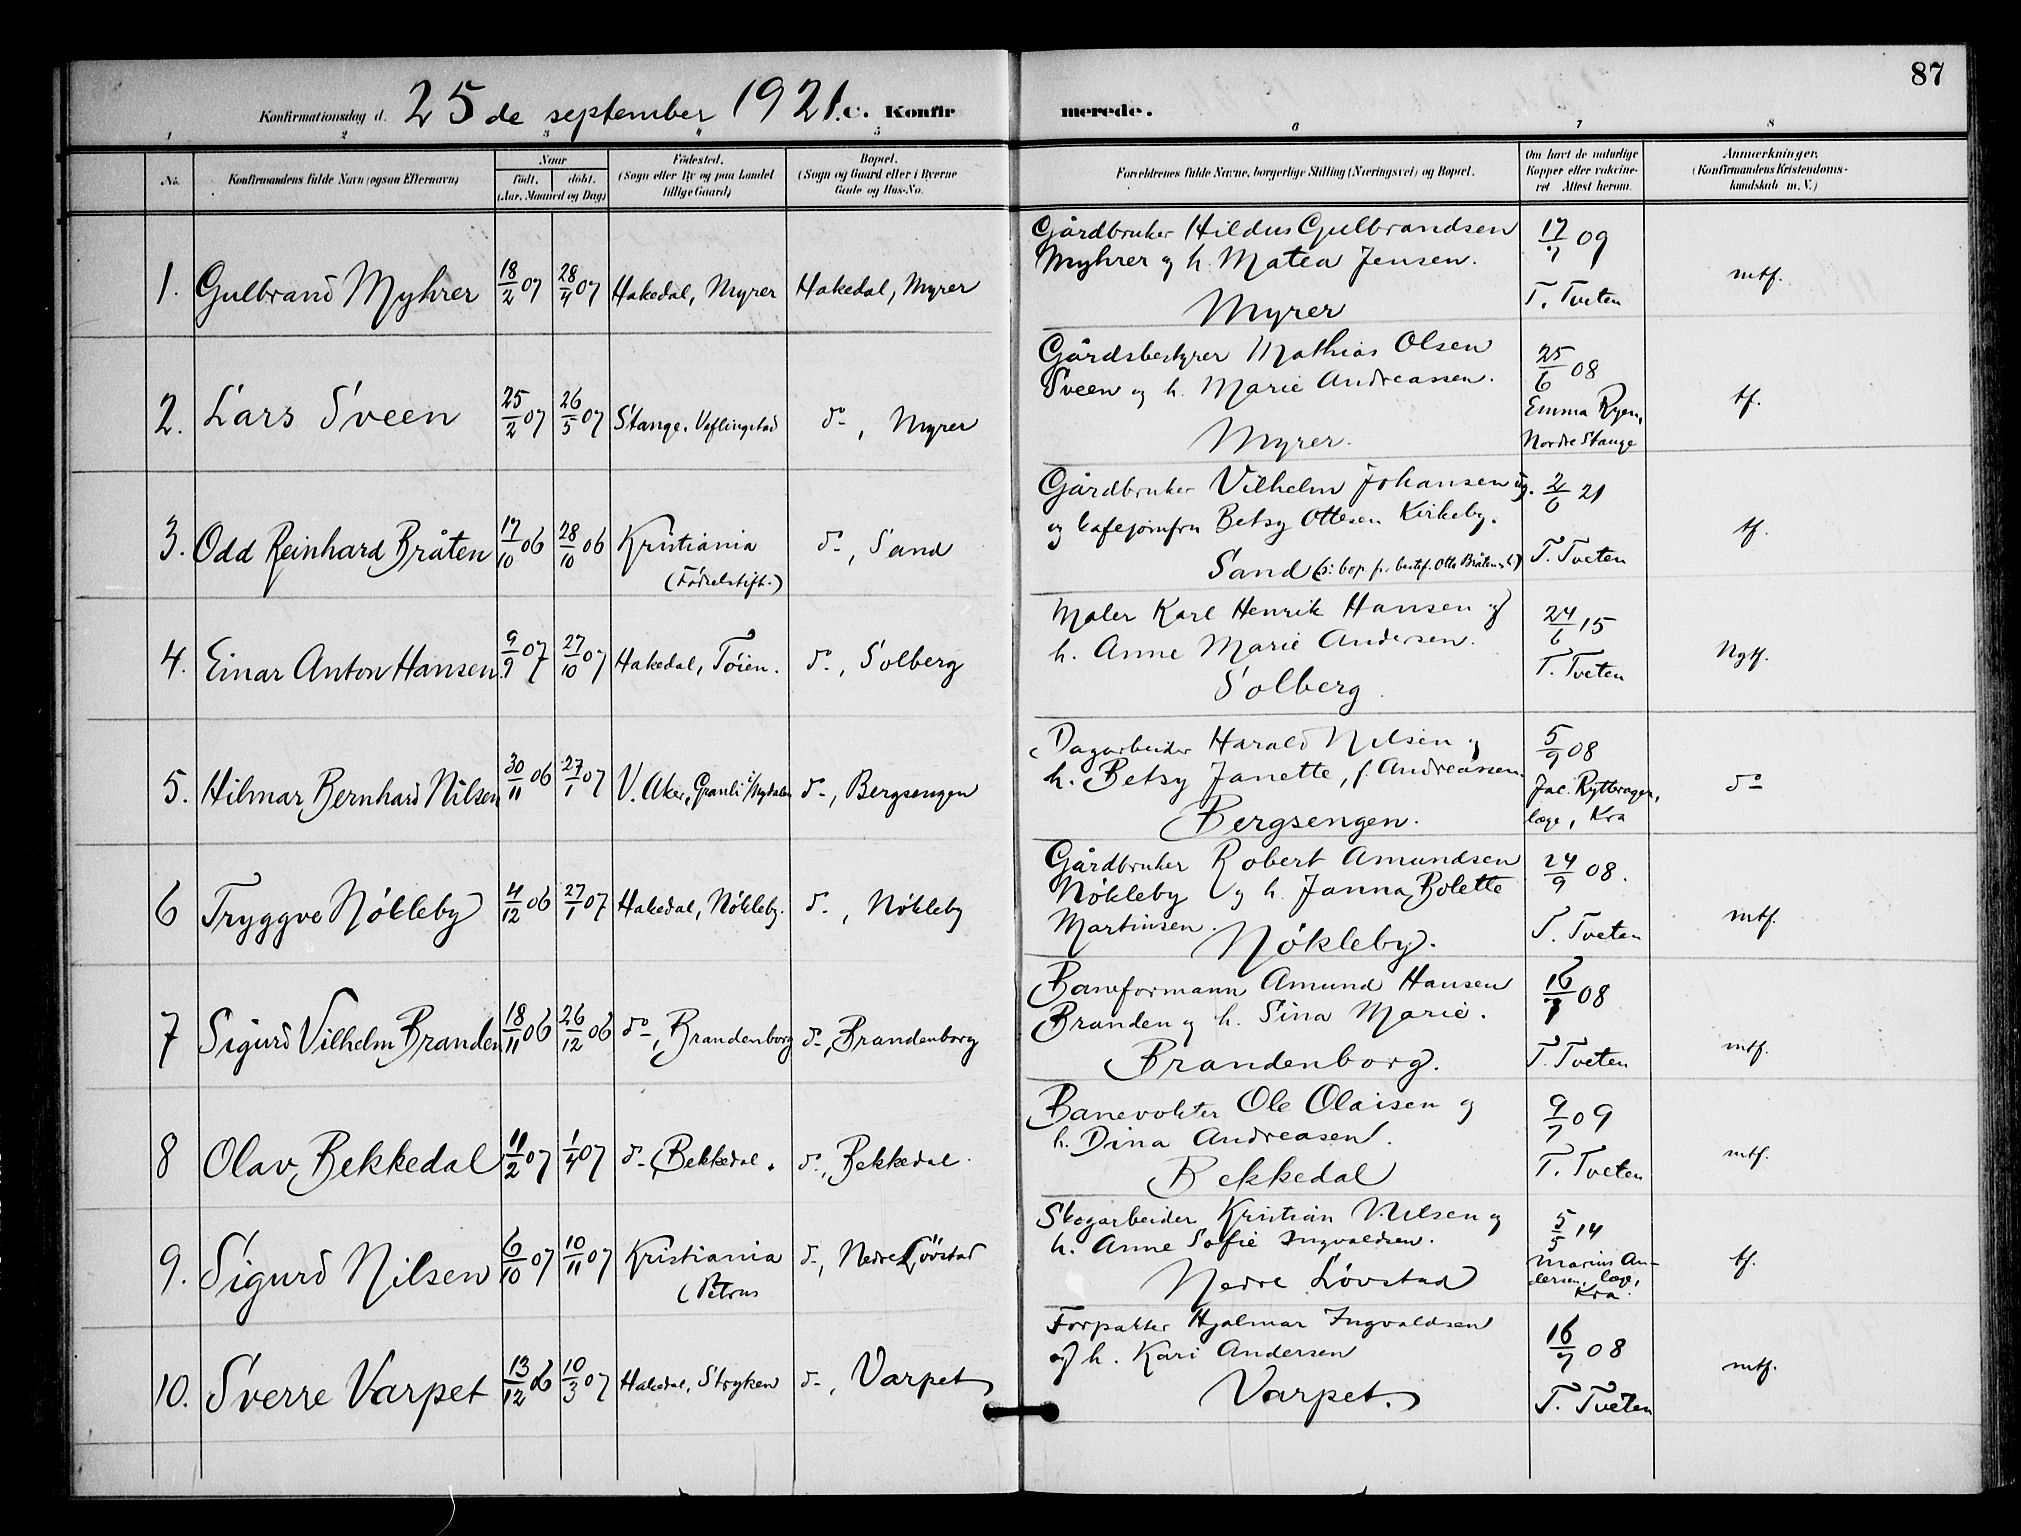 87
Konfirmationsdag d. 25de september 1921. C. Konfirmerede.
1 2 3 4 5 6 7 8
No. Konfirmandens fulde Navn (ogsaa Efternavn) Naar født. døbt. (Aar, Maaned og Dag) Fødested. (Sogn eller By og paa Landet tillige Gaard) Bopæl. (Sogn og Gaard eller i Byerne Gade og Hus-No. Forældrenes fulde Navne, borgerlige Stilling (Næringsvei) og Bopæl. Om havt de naturlige Kopper eller vakcineret. Attest herom. Anmærkninger. (Konfirmandens Kristendomskundskab m. V.)
1. Gulbrand Myhrer 18/2 07 28/4 07 Hakedal, Myrer Hakedal, Myrer
Gårdbruker Hildus Gulbrandsen
Myhrer og h. Matea Jensen.
Myrer
17/9 09
T. Tveten
mtf.
2. Lars Sveen 25/2 07 26/5 07 Stange, Veflingstad do, Myrer
Gårdsbestyrer Mathias Olsen
Sveen og h. Marie Andreassen.
Myrer.
25/6 08
Emma Ryen,
Nordre Stange
tf.
3. Odd Reinhard Bråten 17/10 06 28/10 06 Kristiania (Fødselstift.) do, Sand
Gårdbruker Vilhelm Johansen ug.
og kafejomfru Betsy Ottesen Kirkeby.
Sand (s: bop. fr. bestef. Otto Bråten s.)
2/6 21
T. Tveten
tf.
4. Einar Anton Hansen 9/9 07 27/10 07 Hakedal, Tøien. do, Solberg
Maler Karl Henrik Hansen og
h. Anne Marie Andersen.
Solberg.
24/6 15
T. Tveten
Ngtf.
5. Hilmar Bernhard Nilsen 30/11 06 27/1 07 V. Aker, Granli i/Nydalen do, Bergsengen
Dagarbeider Harald Nilsen og
h. Betsy Janette, f. Andreassen.
Bergsengen.
5/9 08
læge, Kra
do
6 Tryggve Nökleby 4/12 06 27/1 07 Hakedal, Nökleby. do, Nökleby
Gårdbruker Robert Amundsen
Nökleby og h. Janna Bolette
Martinsen.
Nökleby.
24/9 08.
T. Tveten
mtf.
7 Sigurd Vilhelm Branden 18/11 06 26/12 06 do, Brandenborg do, Brandenborg
Baneformann Amund Hansen
Branden og h. Sina Marie.
Brandenborg.
16/7 08
T. Tveten
mtf.
8 Olav Bekkedal 11/2 07 1/4 07 do Bekkedal. do, Bekkedal.
Banevokter Ole Olaisen og
h. Dina Andreasen.
Bekkedal
9/7 09
T. Tveten
mtf.
9. Sigurd Nilsen 6/10 07 10/11 07 Kristiania (Petrus do, Nedre Lövstad
Skogarbeider Kristian Nilsen og
h. Anne Sofie Ingvaldsen.
Nedre Lövstad
5/5 14
Marius An-
dersen, læge,
Kra.
tf.
10. Sverre Varpet 13/12 06 10/3 07 Hakedal, Stryken do, Varpet
Forpakter Hjalmar Ingvaldsen
og h. Kari Andersen
Varpet.
16/7 08
T. Tveten
mtf.